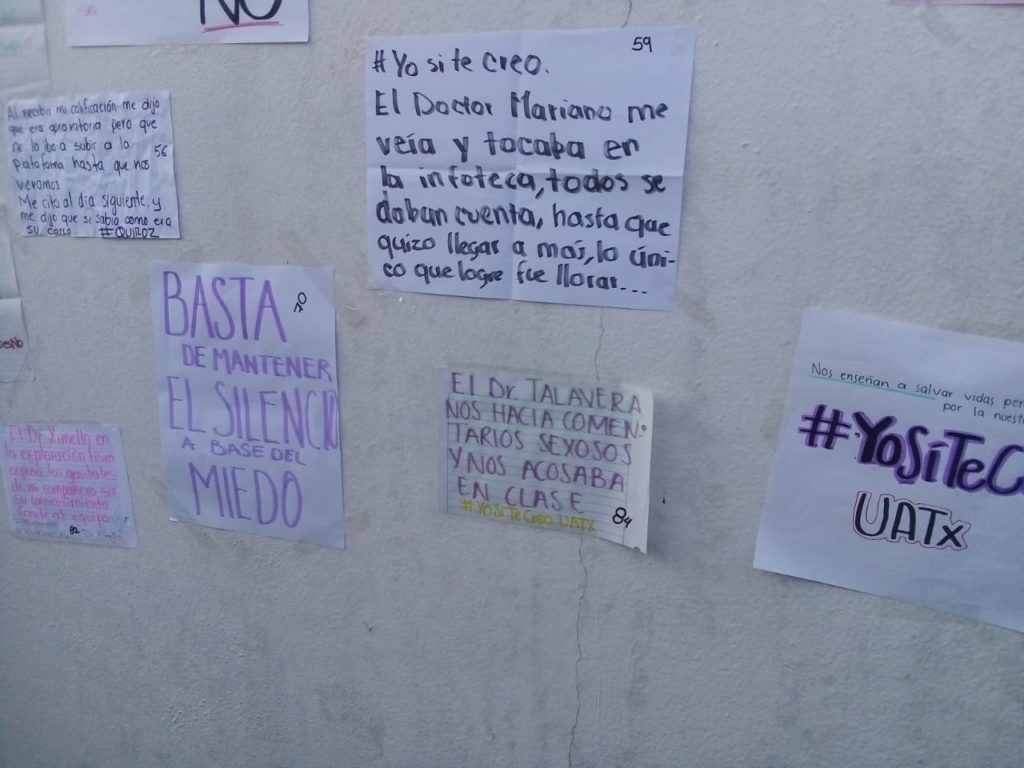 NO
Al recibir mi calificación me dijo
que era aprovatoria pero que
no la iba a subir a la
plataforma hasta que nos
56
veramos
Me cito al día siguiente y
me dijo que si sabía como era
su carro #QUIROZ
59
#Yo si te creo.
El Doctor Mariano me
veía y tocaba en
la infoteca, todos se
daban cuenta, hasta que
quizo llegar a más, lo úni-
co que logre fue llorar...
BASTA
DE MANTENER
EL SILENCIO
A BASE DEL
MIEDO
El Dr. TALAVERA
NOS HACIA COMEN-
TARIOS SEXOSOS
Y NOS ACOSABA
EN CLASE
#YoSiTeCreo UATX
84
El Dr Ximello en
la exploración física
expuso los genitales
de mi compañero sin
su consentimiento
frente al equipo
82
Nos enseñan a salvar vidas
por la
#YoSíTeC
UATx